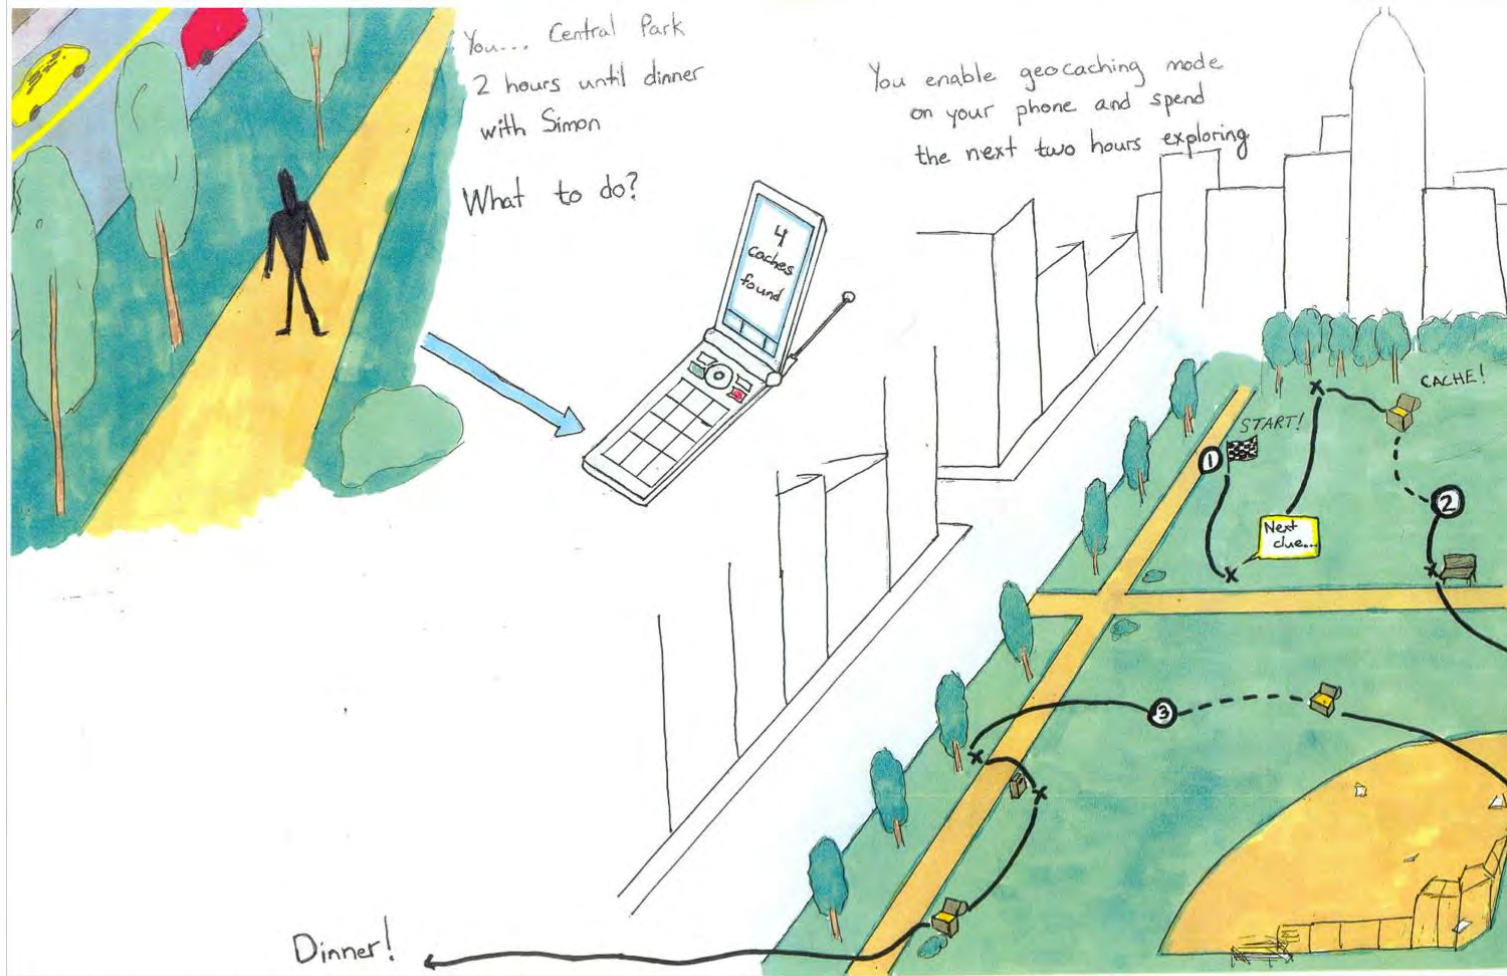 You... Central Park
2 hours until dinner
with Simon
What to do?
4
caches
found
You enable geocaching mode
on your phone and spend
the next two hours exploring
START!
1
Next
clue...
CACHE!
2
3
Dinner!